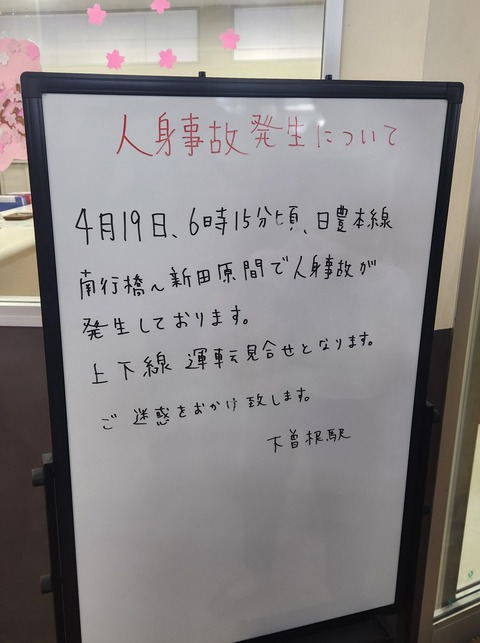 人身事故発生について
4月19日、6時15分頃、日豊本線
南行橋〜新田原間で人身事故が
発生しております。
上下線 運転見合せとなります。
ご迷惑をおかけ致します。
下曽根駅